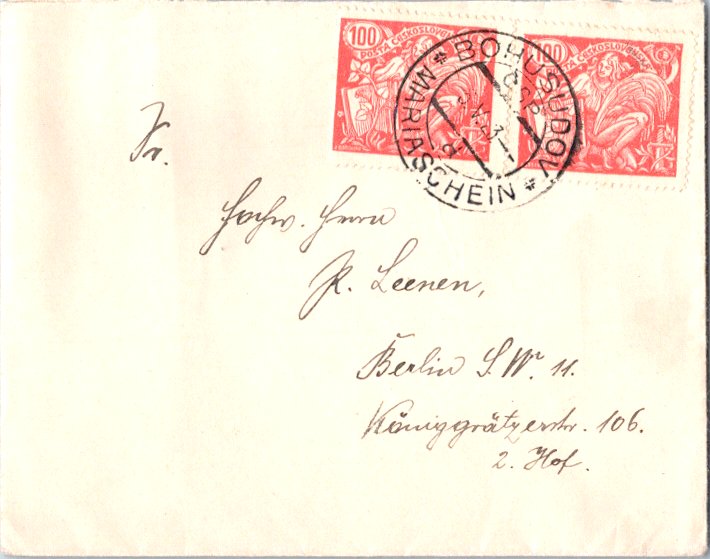 100 POSTA ČESKOSLOVENSKÁ
100 POSTA ČESKOSLOVENSKÁ
* BOHUSUDOV *
MARIASCHEIN
ČSR
Hochw. Herrn
Leenen,
Berlin S.W. 11.
Königgrätzerstr. 106.
2. Hof.